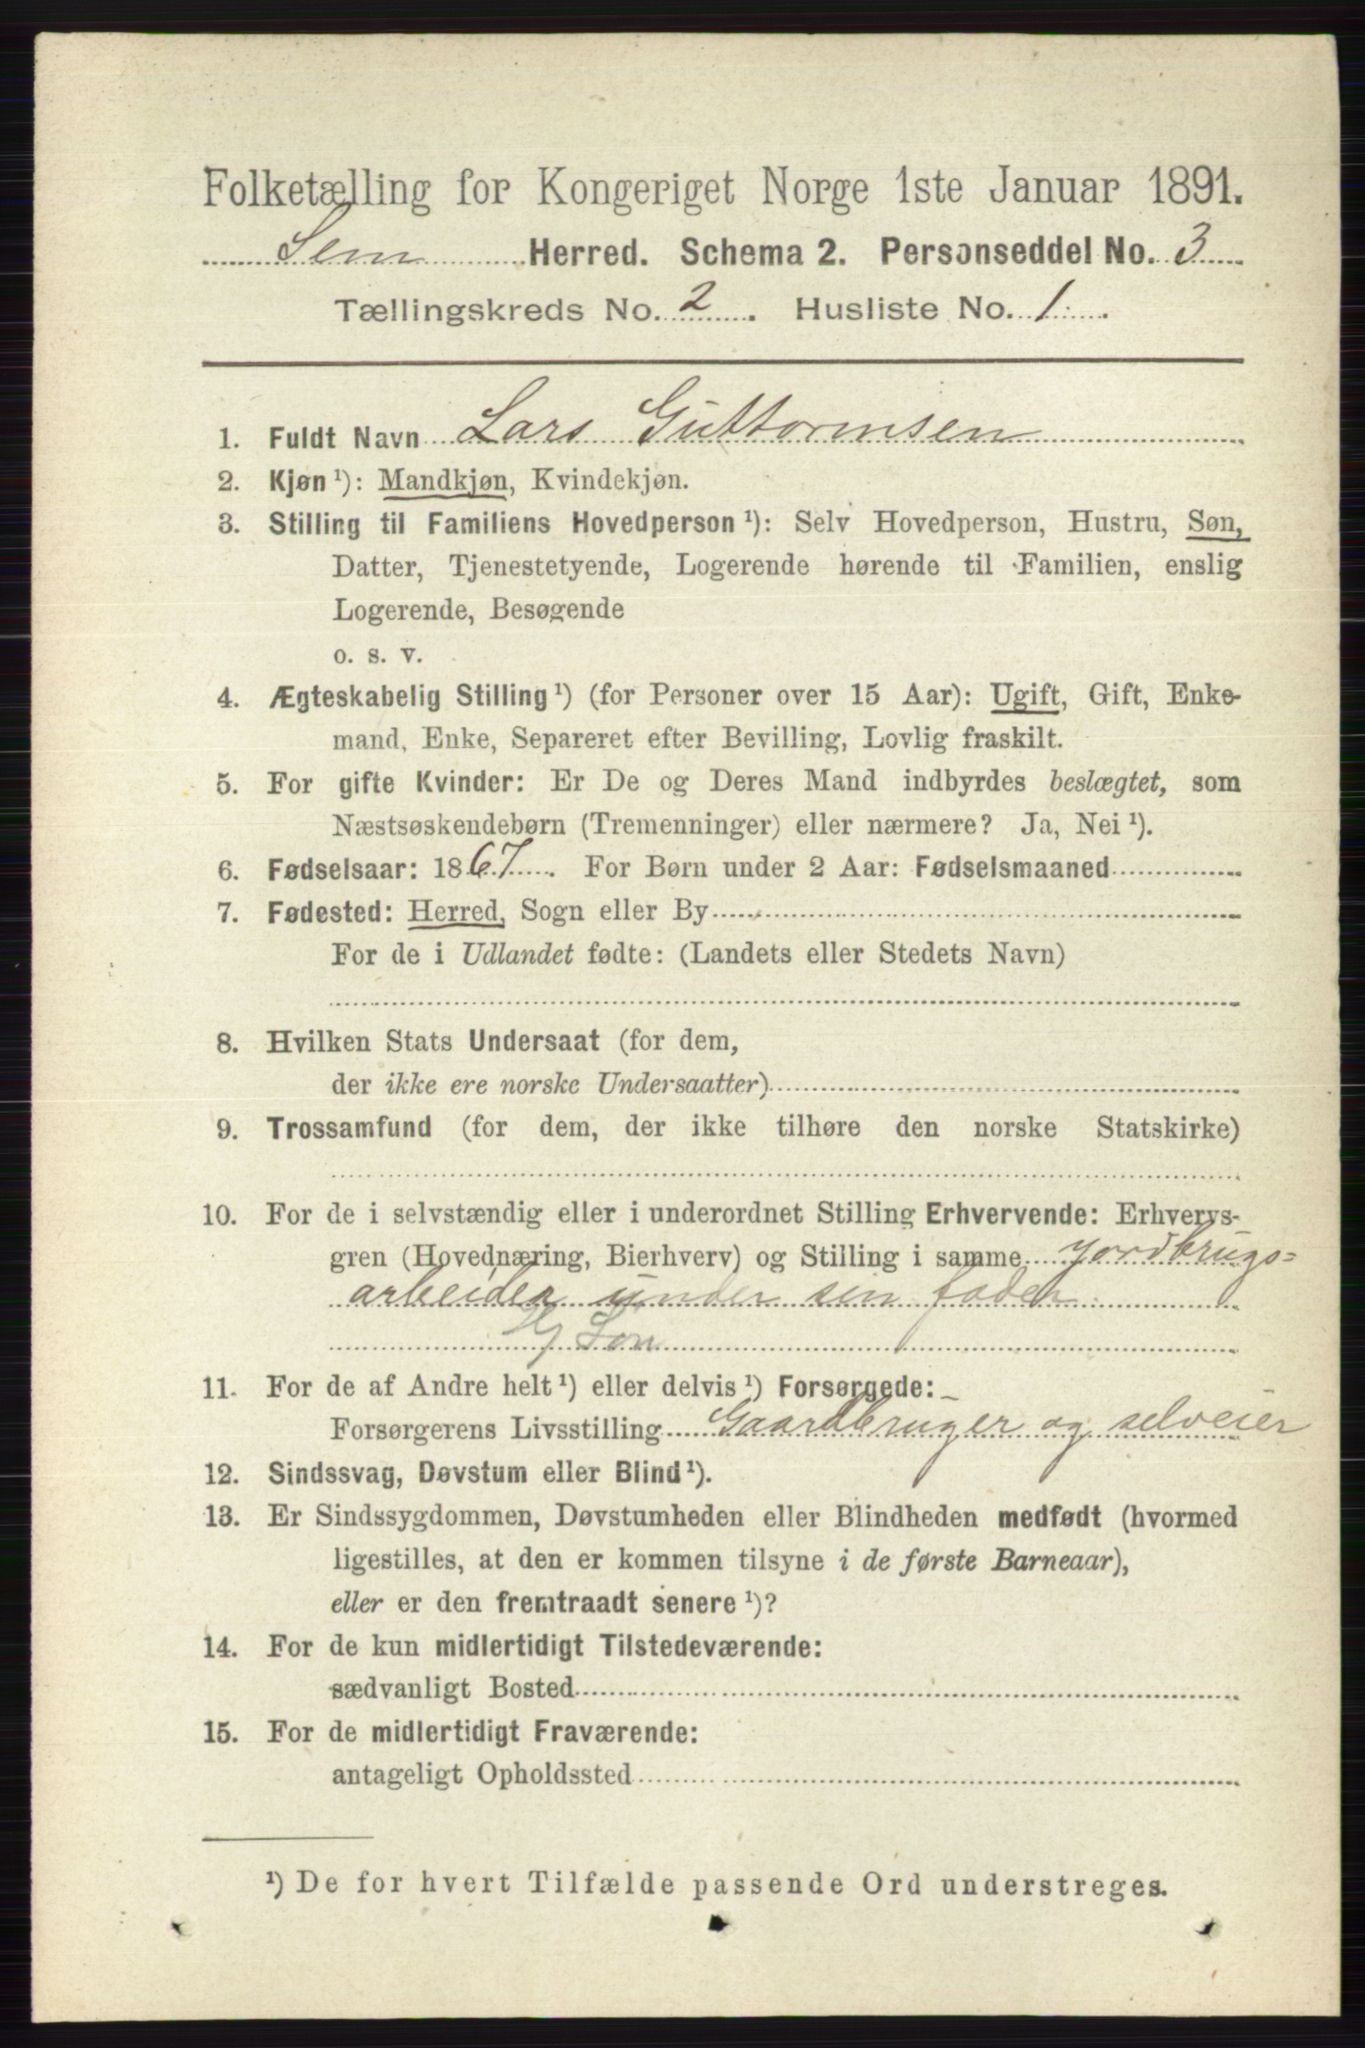 Folketælling for Kongeriget Norge 1ste Januar 1891.
Sem Herred. Schema 2. Personseddel No. 3
Tællingskreds No. 2. Husliste No. 1.
1. Fuldt Navn Lars Guttormsen
2. Kjøn ¹): Mandkjøn, Kvindekjøn.
3. Stilling til Familiens Hovedperson ¹): Selv Hovedperson, Hustru, Søn,
Datter, Tjenestetyende, Logerende hørende til Familien, enslig
Logerende, Besøgende
o. s. v.
4. Ægteskabelig Stilling ¹) (for Personer over 15 Aar): Ugift, Gift, Enke-
mand, Enke, Separeret efter Bevilling, Lovlig fraskilt.
5. For gifte Kvinder: Er De og Deres Mand indbyrdes beslægtet, som
Næstsøskendebørn (Tremenninger) eller nærmere? Ja, Nei ¹).
6. Fødselsaar: 1867. For Børn under 2 Aar: Fødselsmaaned
7. Fødested: Herred, Sogn eller By
For de i Udlandet fødte: (Landets eller Stedets Navn)
8. Hvilken Stats Undersaat (for dem,
der ikke ere norske Undersaatter)
9. Trossamfund (for dem, der ikke tilhøre den norske Statskirke)
10. For de i selvstændig eller i underordnet Stilling Erhvervende: Erhvervs-
gren (Hovednæring, Bierhverv) og Stilling i samme jordbrugs=
arbeider under sin fader
G Søn
11. For de af Andre helt ¹) eller delvis ¹) Forsørgede:
Forsørgerens Livsstilling Gaardbruger og selveier
12. Sindssvag, Døvstum eller Blind ¹).
13. Er Sindssygdommen, Døvstumheden eller Blindheden medfødt (hvormed
ligestilles, at den er kommen tilsyne i de første Barneaar),
eller er den fremtraadt senere ¹)?
14. For de kun midlertidigt Tilstedeværende:
sædvanligt Bosted
15. For de midlertidigt Fraværende:
antageligt Opholdssted
¹) De for hvert Tilfælde passende Ord understreges.